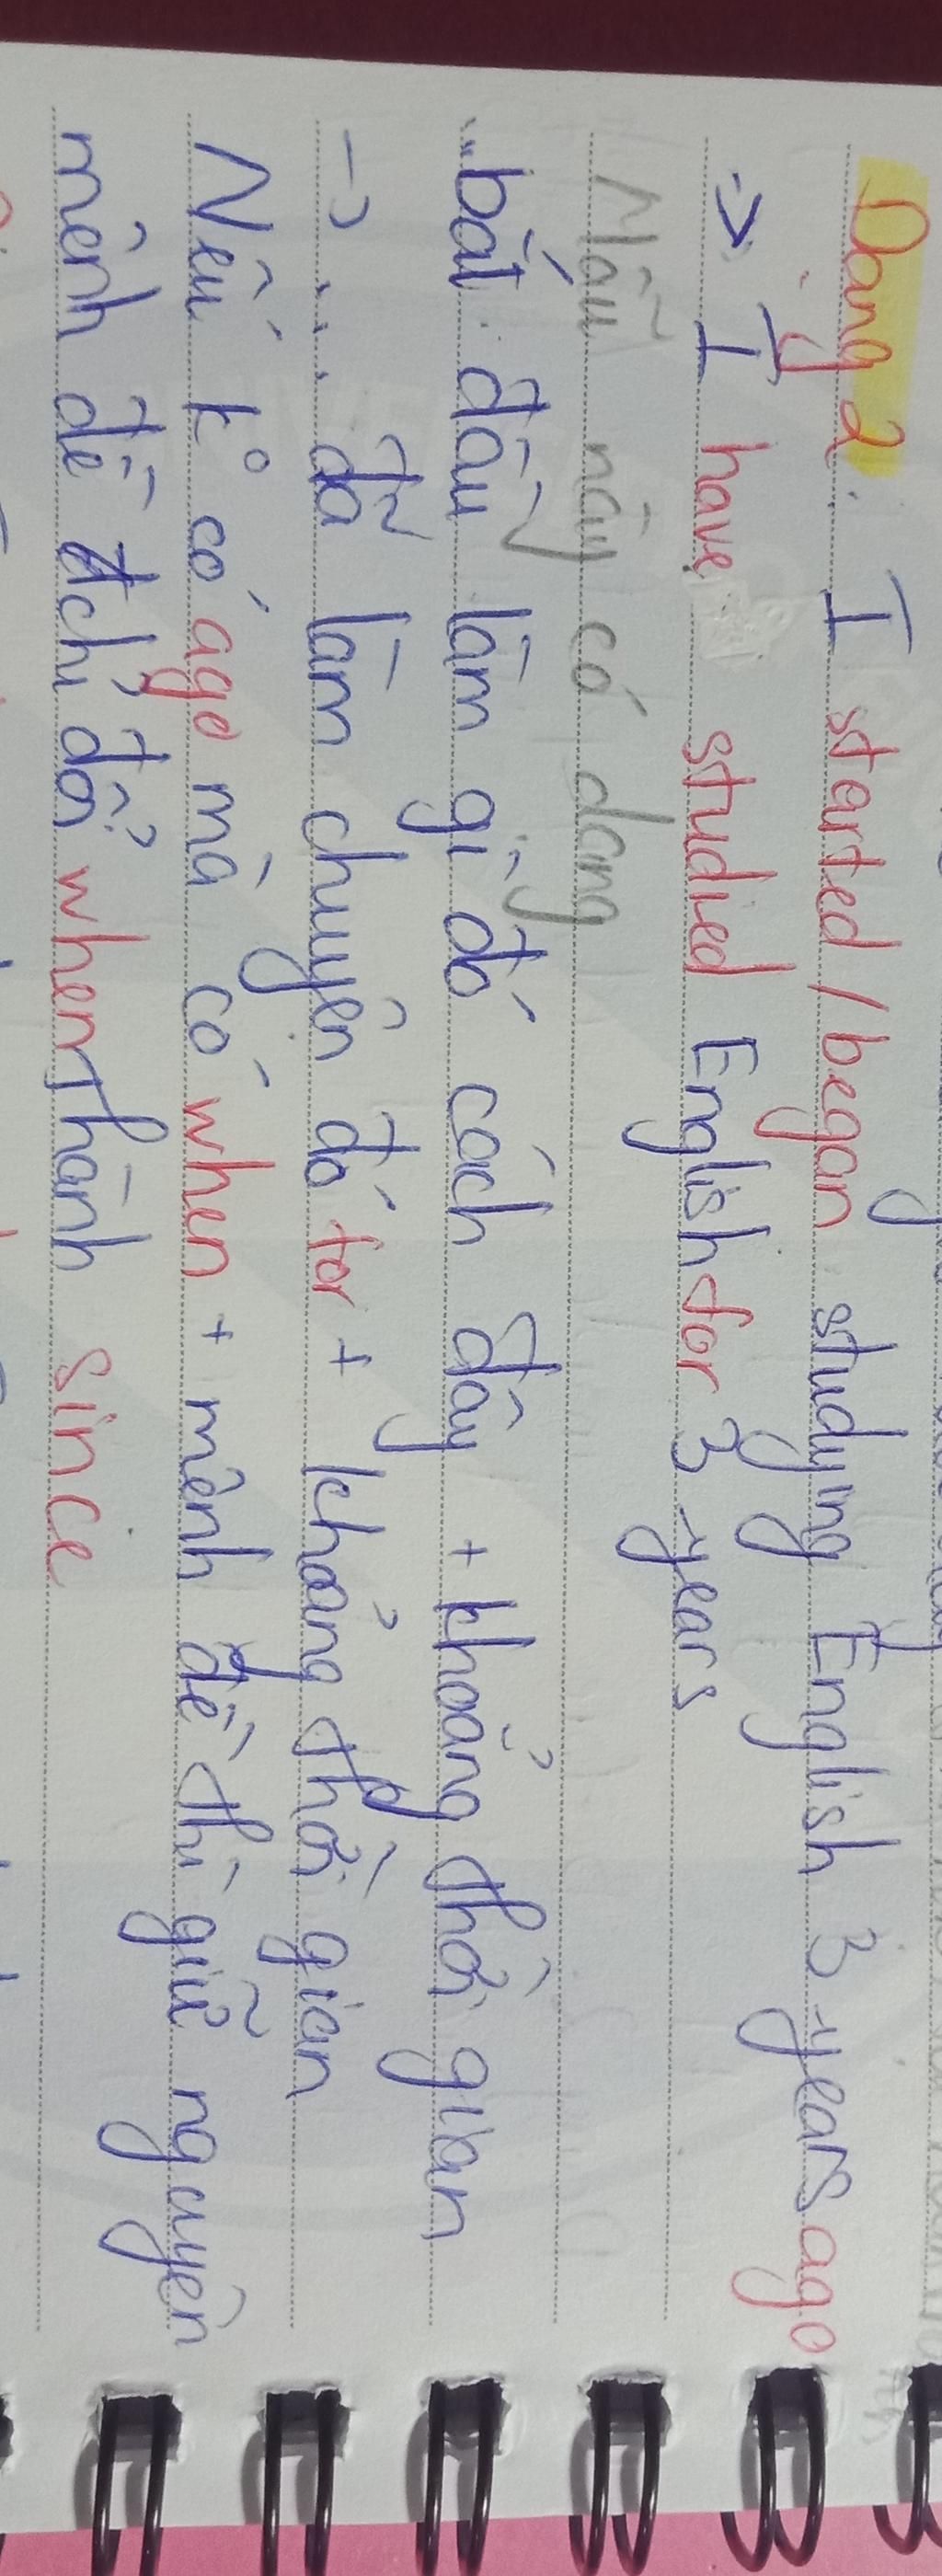 Dạng 2: I started / began studying English 3 years ago
=> I have studied English for 3 years
Mẫu này có dạng
bắt đầu làm gì đó cách đây + khoảng thời gian
-> ... đã làm chuyện đó for + khoảng thời gian
Nếu k° có ago mà có when + mệnh đề thì giữ nguyên
mệnh đề đchỉ đổi when thành since